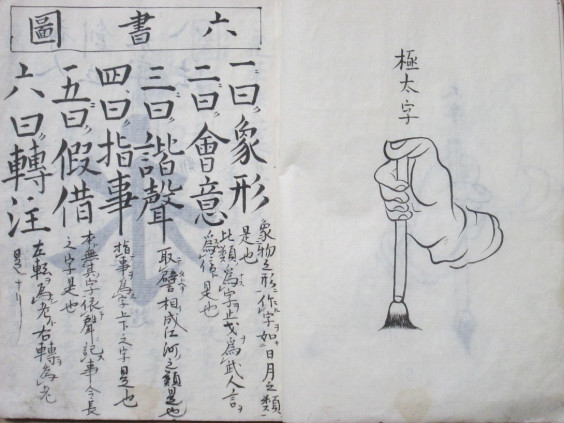 極太字
六書圖
一曰象形
象物之形作字如日月之類
是也
二曰會意
比類為字止戈為武人言
為信是也
三曰諧聲
取譬相成江河之類是也
四曰指事
指事為字上下之字是也
五曰假借
本無其字依聲記事令長
之字是也
六曰轉注
左轉為考右轉為老
是ナリ